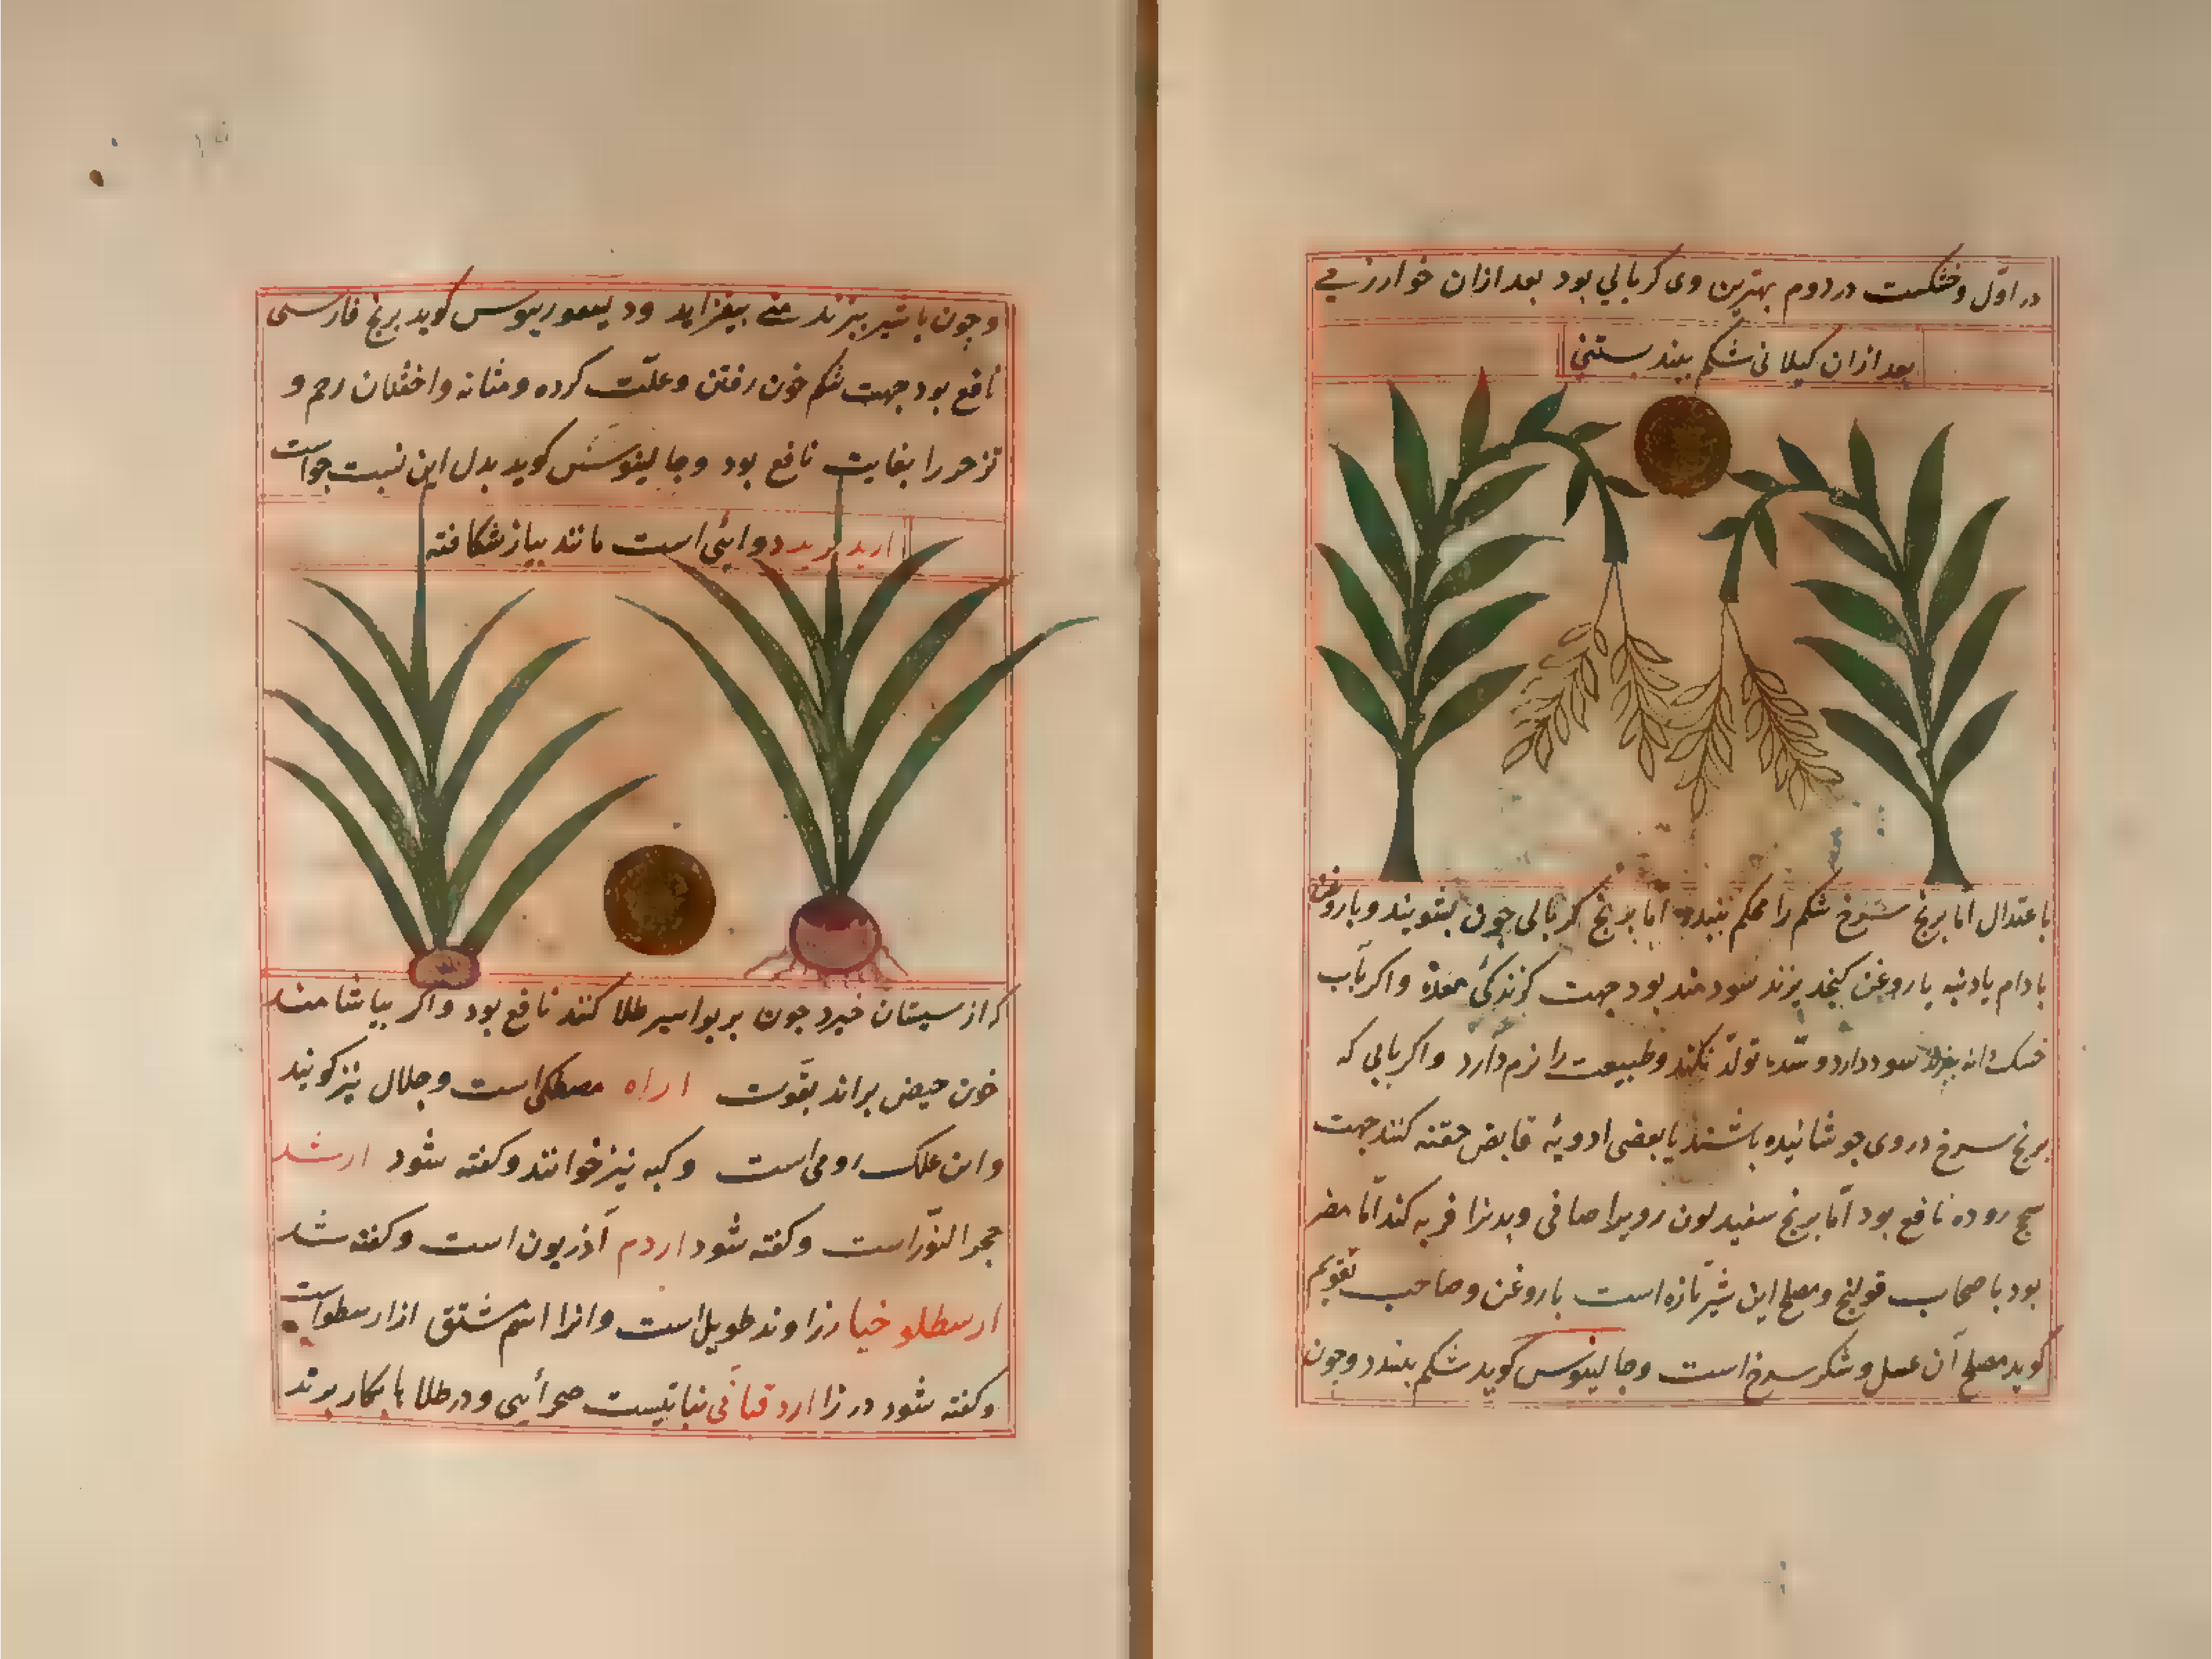 در اوّل و خشکست در دوم بهترین وی کربالی بود بعد ازان خوارزمی
بعد ازان کیلانی شکم ببندد بستنی
باعتدال امّا برنج سرخ شکم را محکم ببندد امّا برنج کربالی چون بشویند و با روغن
بادام یا دنبه یا روغن کنجد پزند سودمند بود جهت کزندکی معده و اکر بآب
سود دارد و سدّه تولّد نکند و طبیعت را نرم دارد و اکر بآبی که
برنج سرخ در وی جوشانیده باشند با بعضی ادویهٔ قابض حقنه کنند جهت
سحج روده نافع بود امّا برنج سفید لون رویرا صافی و بدنرا فربه کند امّا مضر
بود باصحاب قولنج و مصلح این شیر تازه است با روغن و صاحب تقویم
کوید مصلح آن عسل و شکر سرخ است و جالینوس کوید شکم ببندد و چون
و چون با شیر بپزند منی بیفزاید ودیسقوریدوس کوید برنج فارسی
نافع بود جهت شکم خون رفتن و علّت کرده و مثانه و اختناق رحم و
تزحر را بغایت نافع بود و جالینوس کوید بدل این نسبت جو است
اربد برید دوائی است مانند پیاز شکافته
که از سیستان خیزد چون بر بواسیر طلا کنند نافع بود و اکر بیاشامند
خون حیض براند بقوت اراه مصطکی است و جلال نیز کویند
و این علک رومی است و کیه نیز خوانند و کفته شود ارشد
حجر النّور است و کفته شود اردم آذریون است و کفته شد
ارسطلوخیا رزاوند طویل است و انرا اسم مشتق از ارسطو است
و کفته شود در زا اردقنانی نباتیست صحرائی و در طلا با بکار برند